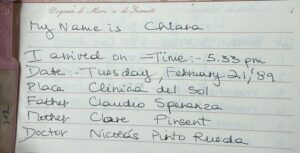 My Name is Chiara
I arrived on - Time:- 5.33 pm
Date:- Tuesday, February 21/89
Place Clinica del Sol
Father Claudio Speranza
Mother Clare Pinsent
Doctor Nicolás Pinto Rueda